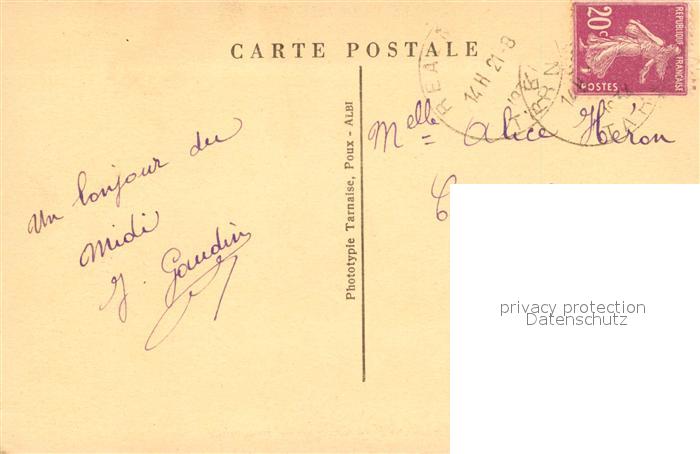 CARTE POSTALE
20c
RÉPUBLIQUE FRANÇAISE
POSTES
14 H 21-8
Un bonjour du
Midi
Y. Gaudin
Phototypie Tarnaise, Poux - ALBI
Melle Alice Héron
privacy protection
Datenschutz